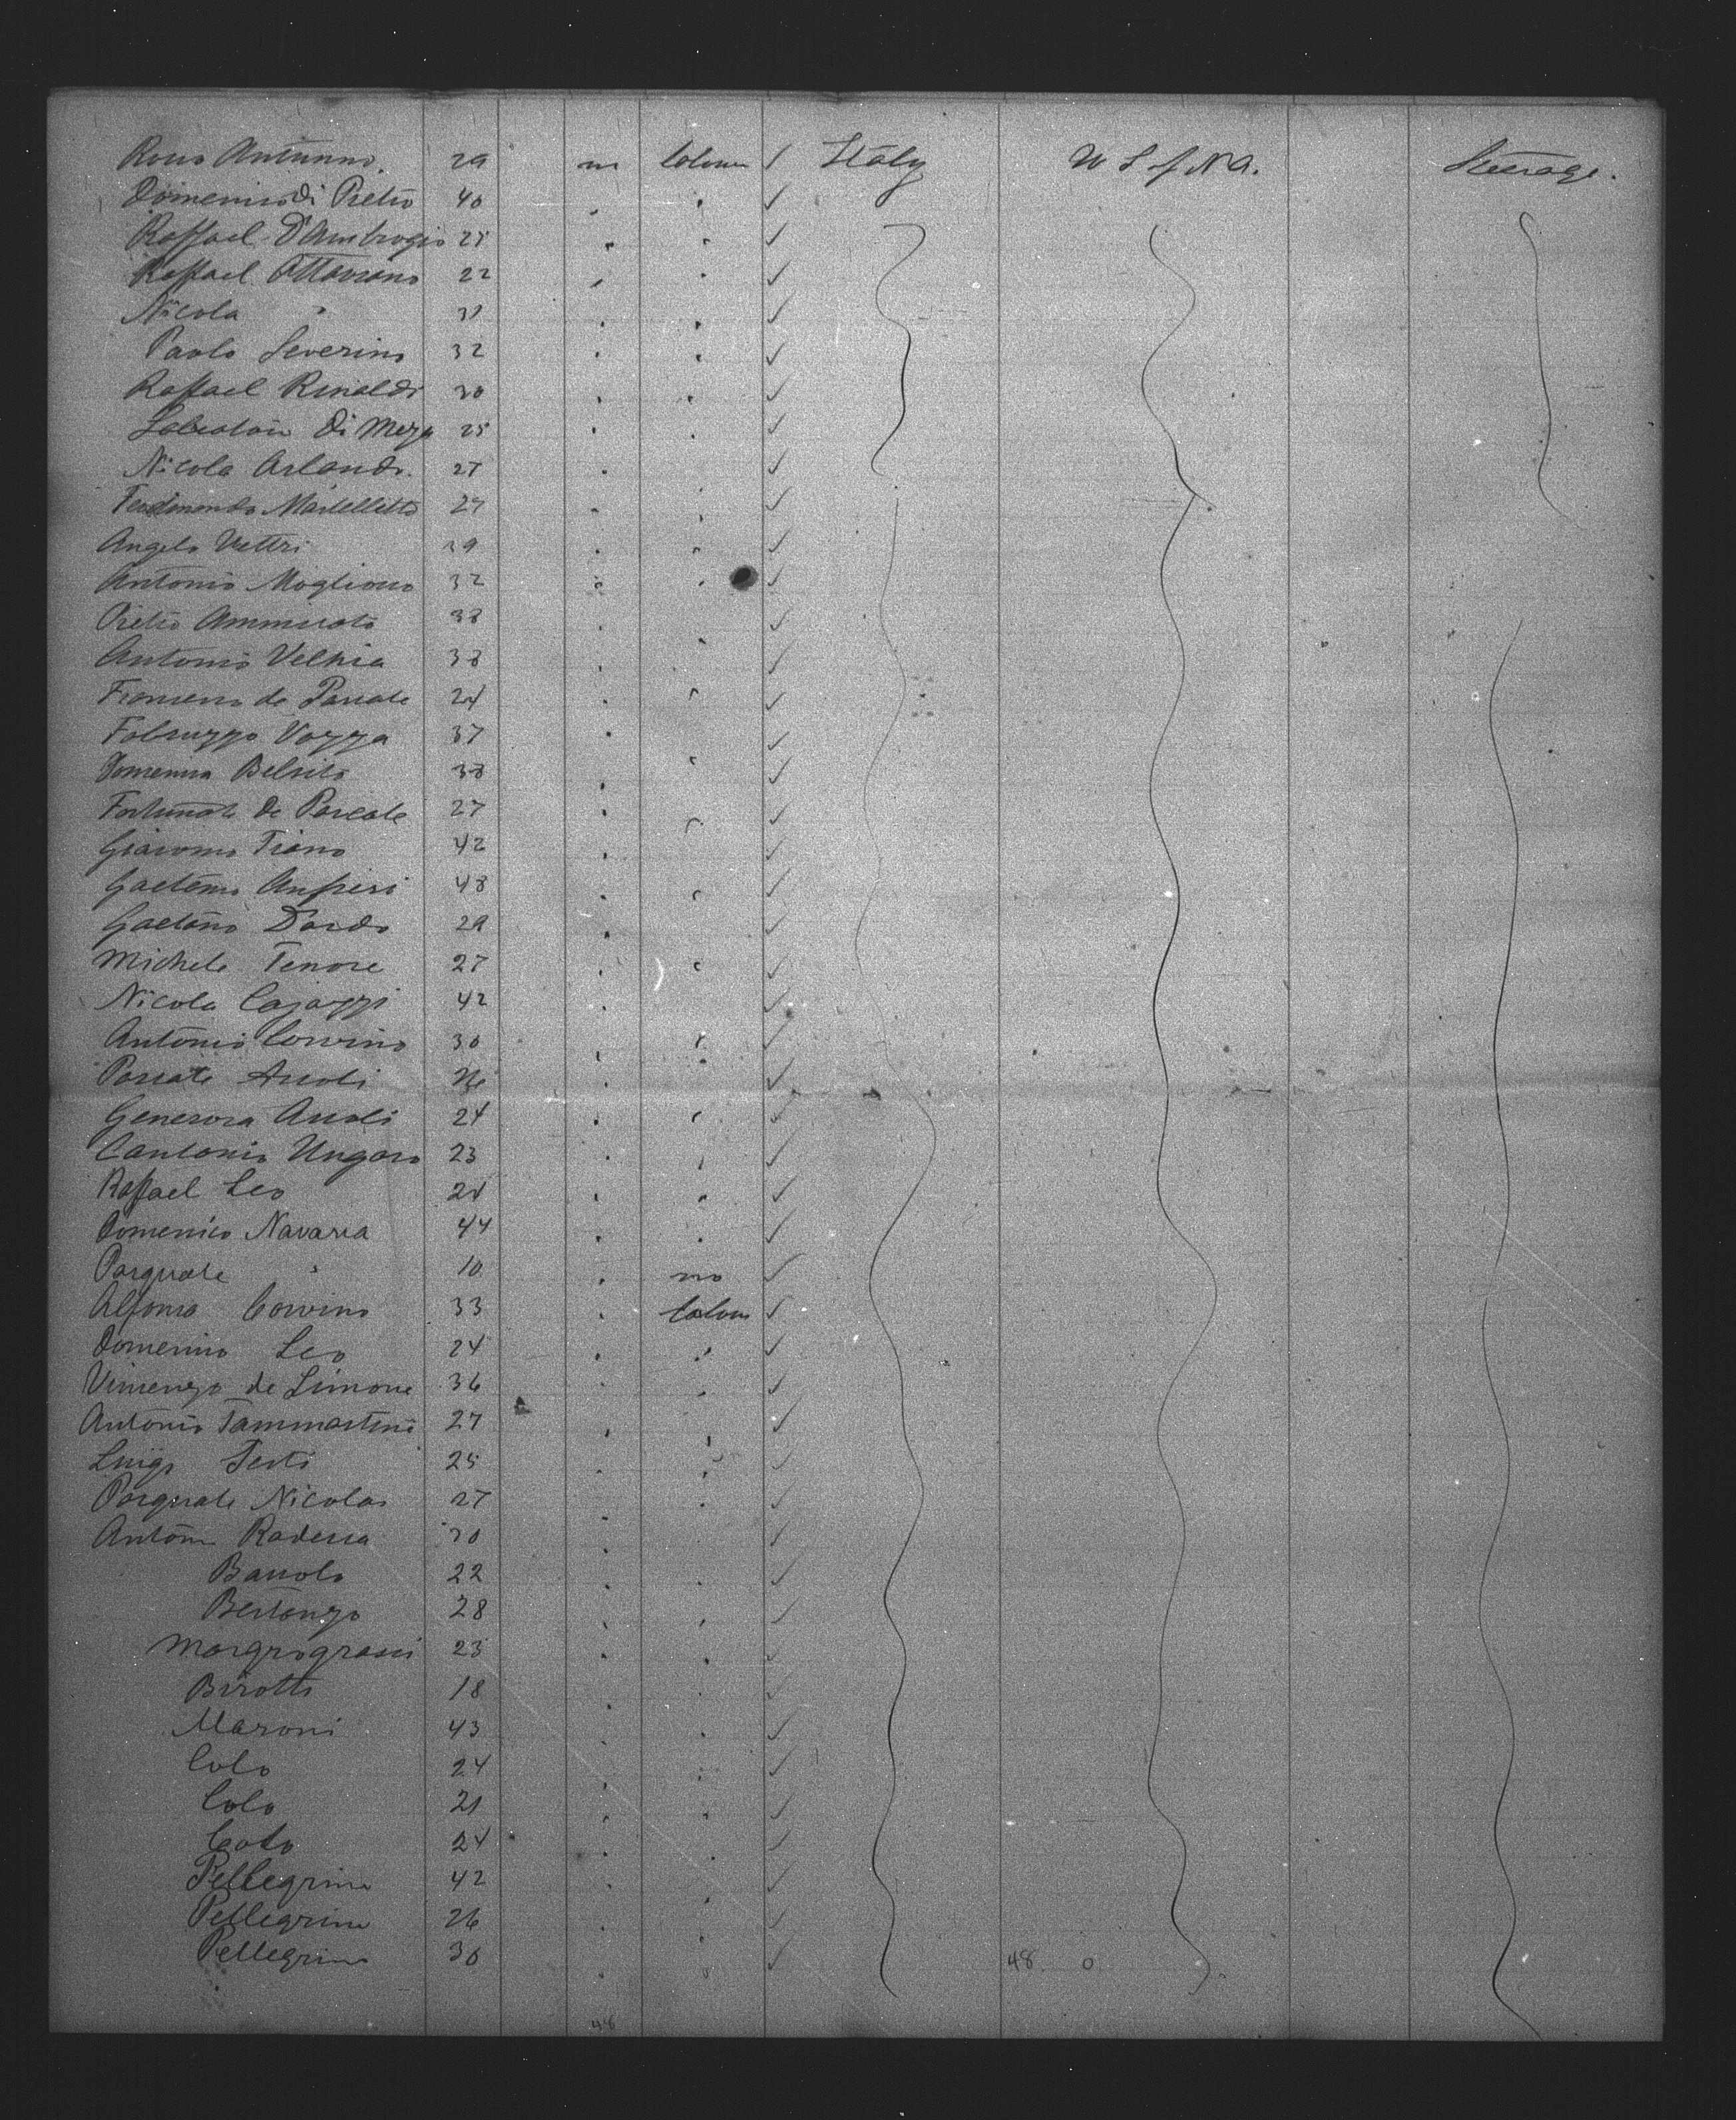 Antunno 29 m Labourer / Italy U S of N A. Steerage.
Domenico di Pietro 40
Raffael D'Ambrogio 25
Raffael Ottaviano 22
Nicola " 31
Paolo Severino 32
Raffael Rinaldi 30
Di Meza 25
Nicola Orlando 27
Ferdinando Martelletto 27
Angelo Vettri 29
Antonio Moglioni 32
Pietro Ammirato 38
Antonio Velhia 38
Francesco de Pascale 24
Fabruzzo Vozza 37
Domenica Belsito 38
Fortunato De Pascale 27
Giacomo Tiano 42
Gaetano 48
Gaetano Dardo 29
Michele Tenore 27
Nicola Cajazzi 42
Antonio Corvino 30
Ascoli 26
Generosa Ascoli 24
Cantonio Ungaro 23
Raffael Leo 24
Domenico Navarra 44
Pasquale " 10 no
Alfonso Corvino 33 Labour
Domenico Leo 24
Vincenzo de Simone 36
Antonio Tammartino 27
Luigi Testi 25
Pasquale Nicolas 27
Antonio Radessa 30
Barrolo 22
Bertonzo 28
23
Birotti 18
Maroni 43
Colo 24
Colo 21
Coto 24
Pellegrino 42
Pellegrino 26
Pellegrino 30 48 0
48